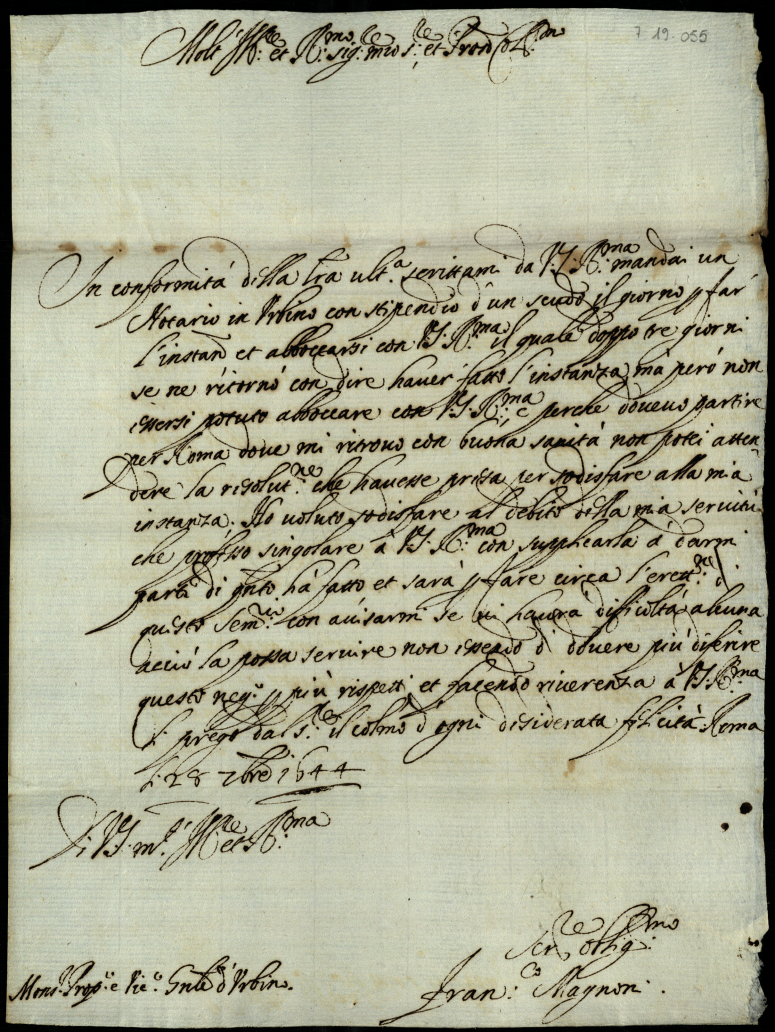 7 19-055
Molt' Ill:re et R:mo Sig:re mio S:re et Pron Col:mo
In conformitá della lra ult:a scrittami da V.S. R:ma mandai un
Notario in Urbino con stipendio d'un scudo il giorno p far
l'instan et abboccarsi con V.S. R:ma il quale doppo tre giorni
se ne ritornó con dire haver fatto l'instanza má peró non
essersi potuto abboccare con V.S. R:ma, e perche dovevo partire
per Roma dove mi ritrovo con buona sanitá non potei atten
dere la resolut:ne che havesse presa per sodisfare alla mia
instanza. Ho voluto sodisfare al debito della mia servitú
che professo singolare á V.S. R:ma con supplicarla á darmi
parte di qnto há fatto et sará p fare circa l'erett:ne d
questo Sem:rio con avisarmi se vi haverá difficoltá alcuna
acció la possa servire non essendo di dovere piú diferire
questo neg:o p piú rispetti et facendo riverenza á V.S. R:ma
li prego dal S:re il colmo d'ogni desiderata felicitá. Roma
li 28 7bre 1644
Di V.S. m:to Ill:re et R:ma
Ser:re oblig:mo
Fran:co Magnoni.
Mons:r Prop:o e Vic:o Gnle d'Urbino.